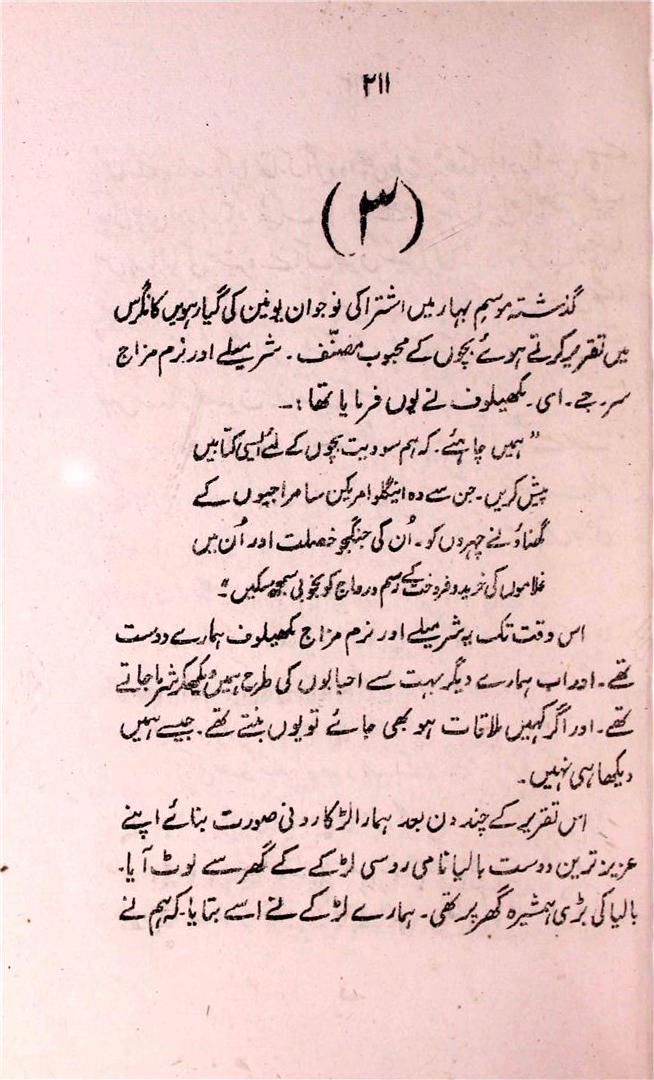 ۲۱۱
(۳)
گذشتہ موسمِ بہار میں اشتراکی نوجوان یونین کی گیارہویں کانگرس
میں تقریر کرتے ہوئے بچوں کے محبوب مصنّف۔ شرمیلے اور نرم مزاج
سر۔ جے۔ ای۔ مکھیلوف نے یوں فرمایا تھا :۔
"ہمیں چاہئے۔ کہ ہم سوویت بچوں کے لئے ایسی کتابیں
پیش کریں۔ جن سے وہ اینگلو امریکن سامراجیوں کے
گھناؤنے چہروں کو۔ اُن کی جنگجو خصلت اور اُن میں
غلاموں کی خرید و فروخت کے رسم و رواج کو بخوبی سمجھ سکیں"
اس وقت تک یہ شرمیلے اور نرم مزاج مکھیلوف ہمارے دوست
تھے۔ اور اب ہمارے دیگر بہت سے احبابوں کی طرح ہمیں دیکھ کر شرما جاتے
تھے۔ اور اگر کہیں ملاقات ہو بھی جائے تو یوں بنتے تھے۔ جیسے ہمیں
دیکھا ہی نہیں۔
اس تقریر کے چند دن بعد ہمارا لڑکا رونی صورت بنائے اپنے
عزیز ترین دوست بالیا نامی روسی لڑکے کے گھر سے لوٹ آیا۔
بالیا کی بڑی ہمشیرہ گھر پر تھی۔ ہمارے لڑکے نے اسے بتایا۔ کہ ہم نے